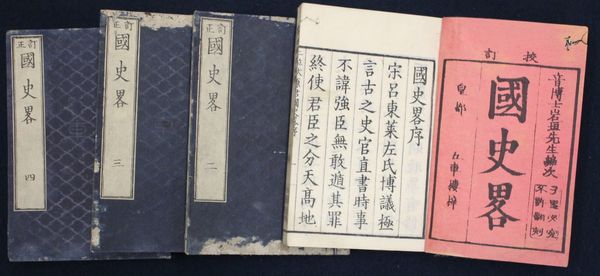 挍訂
音博士岩垣先生編次
不許翻刻
國史畧
皇都 五車樓梓
國史畧序
宋呂東萊左氏博議極
言古之史官直書時事
不諱強臣無敢遁其罪
終使君臣之分天高地
訂正
國史畧 二
訂正
國史畧 三
訂正
國史畧 四